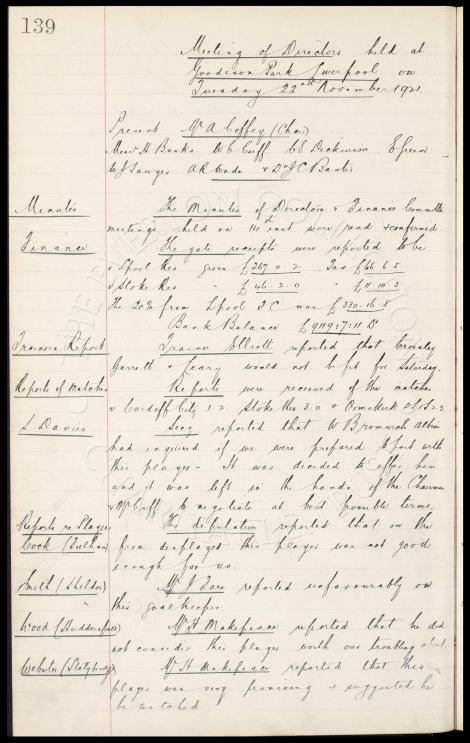 139
Meeting of Directors held at
Goodison Park Liverpool on
Tuesday 22nd November 1921
Present Mr A Coffey (Chair)
Messrs H Banks W C Cuff C E Dickinson E Green
W J Sawyer A R Wade & Dr J C Baxter
Minutes The Minutes of Directors & Finance Committee
meetings held on 14th inst were read & confirmed
Finance The gate receipts were reported to be
v Lpool Res gross £267.0.2 Tax £66.6.5
v Stoke Res " £46.2.0 " £11.10.3
The 20% from Lpool F C was £330.16.8
Bank Balance £9119:7:11 Dr
Trainers Report Trainer Elliott reported that Crossley
Garrett & Leary would not be fit for Saturday.
Reports of Matches Reports were received of the matches
v Cardiff City 1.2 Stoke Res 3.0 & Ormskirk 2.3
S Davies Secy reported that W Bromwich Albion
had enquired if we were prepared to part with
this player - It was decided to offer him
and it was left in the hands of the Chairman
& Mr Cuff to negotiate at best possible terms.
Reports re Players The deputation reported that on the
Cock (Fulham) form displayed this player was not good
enough for us.
Smith (Shildon) Mr J Fare reported unfavourably on
this goalkeeper
Wood (Huddersfield) Mr H Makepeace reported that he did
not consider this player worth our troubling about
Webster (Stalybridge) Mr H Makepeace reported that this
player was very promising & suggested he
be watched